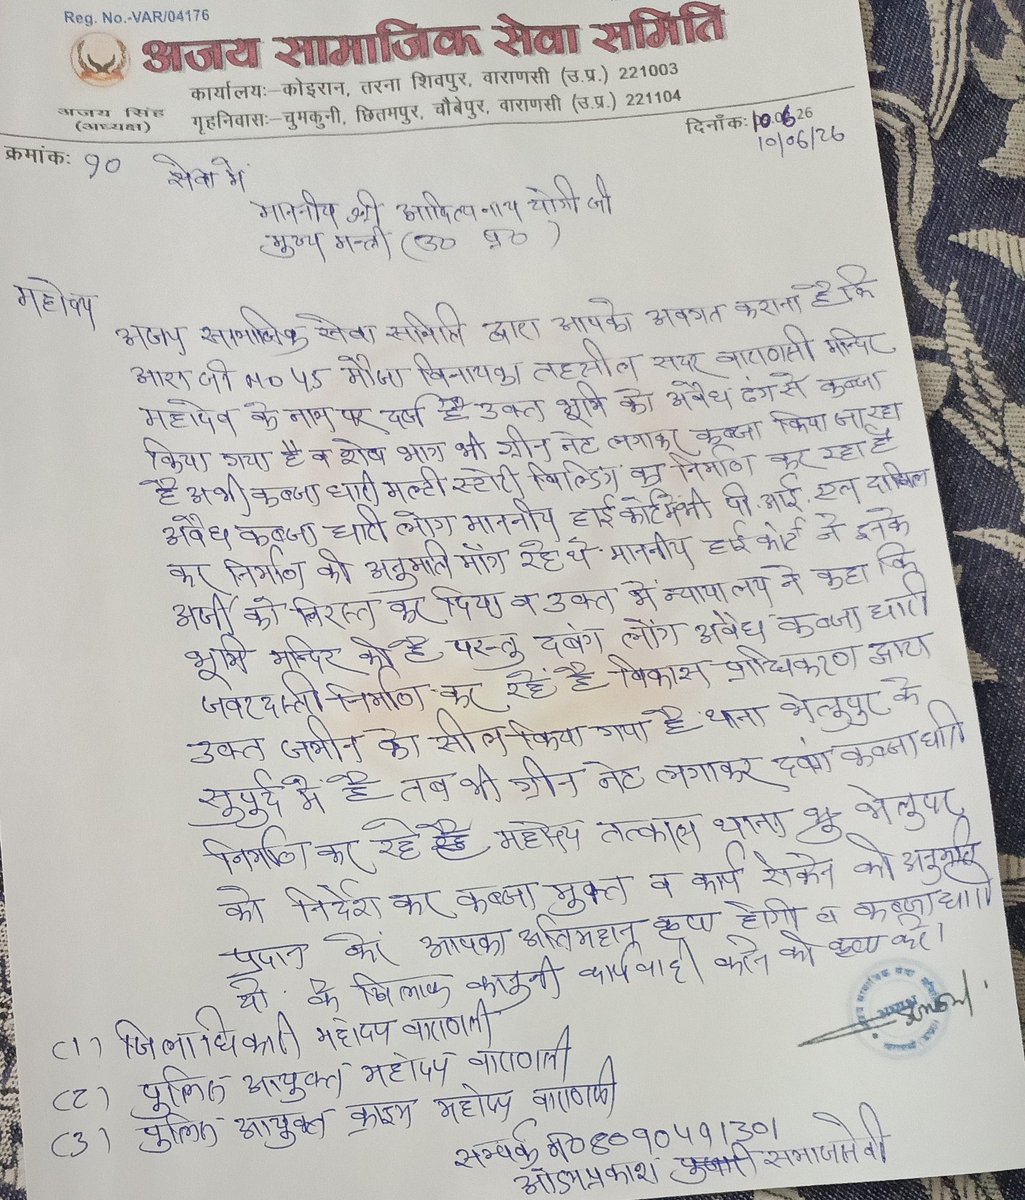 Reg. No.-VAR/04176
अजय सामाजिक सेवा समिति
कार्यालयः–कोइरान, तरना शिवपुर, वाराणसी (उ.प्र.) 221003
अजय सिंह
(अध्यक्ष)
गृहनिवासः–चुमकुनी, छितमपुर, चौबेपुर, वाराणसी (उ.प्र.) 221104
क्रमांकः 90
दिनाँकः 10.06.26
10/06/26
सेवा में
माननीय श्री आदित्यनाथ योगी जी
मुख्य मन्त्री (उ० प्र०)
महोदय
अजय सामाजिक सेवा समिति द्वारा आपको अवगत कराना है कि
आराजी no 45 मौजा विनायका तहसील सदर वाराणसी मन्दिर
महादेव के नाम पर दर्ज है उक्त भूमि को अवैध ढंग से कब्जा
किया गया है व शेष भाग भी ग्रीन नेट लगाकर कब्जा किया जा रहा
है अभी कब्जा धारी मल्टी स्टोरी बिल्डिंग का निर्माण कर रहा है
अवैध कब्जा धारी लोग माननीय हाई कोर्ट में भी पी. आई. एल दाखिल
कर निर्माण की अनुमती माँग रहे थे. माननीय हाई कोर्ट ने इनके
अर्जी को निरस्त कर दिया व उक्त में न्यायालय ने कहा कि
भूमि मन्दिर की है परन्तु दबंग लोंग अवैध कब्जा धारी
जबरदस्ती निर्माण कर रहें है विकास प्राधिकरण द्वारा
उक्त जमीन को सील किया गया है थाना भेलुपुर के
सुपुर्द में है तब भी ग्रीन नेट लगाकर दबंग कब्जाधारी
निर्माण कर रहे है महोदय तत्काल थाना भेलुपुर
को निर्देश कर कब्जा मुक्त व कार्य रोकने की अनुमति
प्रदान करें आपका अतिमहान कृपा होगी व कब्जाधारी
यो के खिलाफ कानुनी कार्यवाही करने की कृपा करें।
(1) जिलाधिकारी महोदय वाराणसी
(2) पुलिस आयुक्त महोदय वाराणसी
(3) पुलिस आयुक्त क्राइम महोदय वाराणसी
सम्पर्क no 8090491301
ओमप्रकाश समाजसेवी